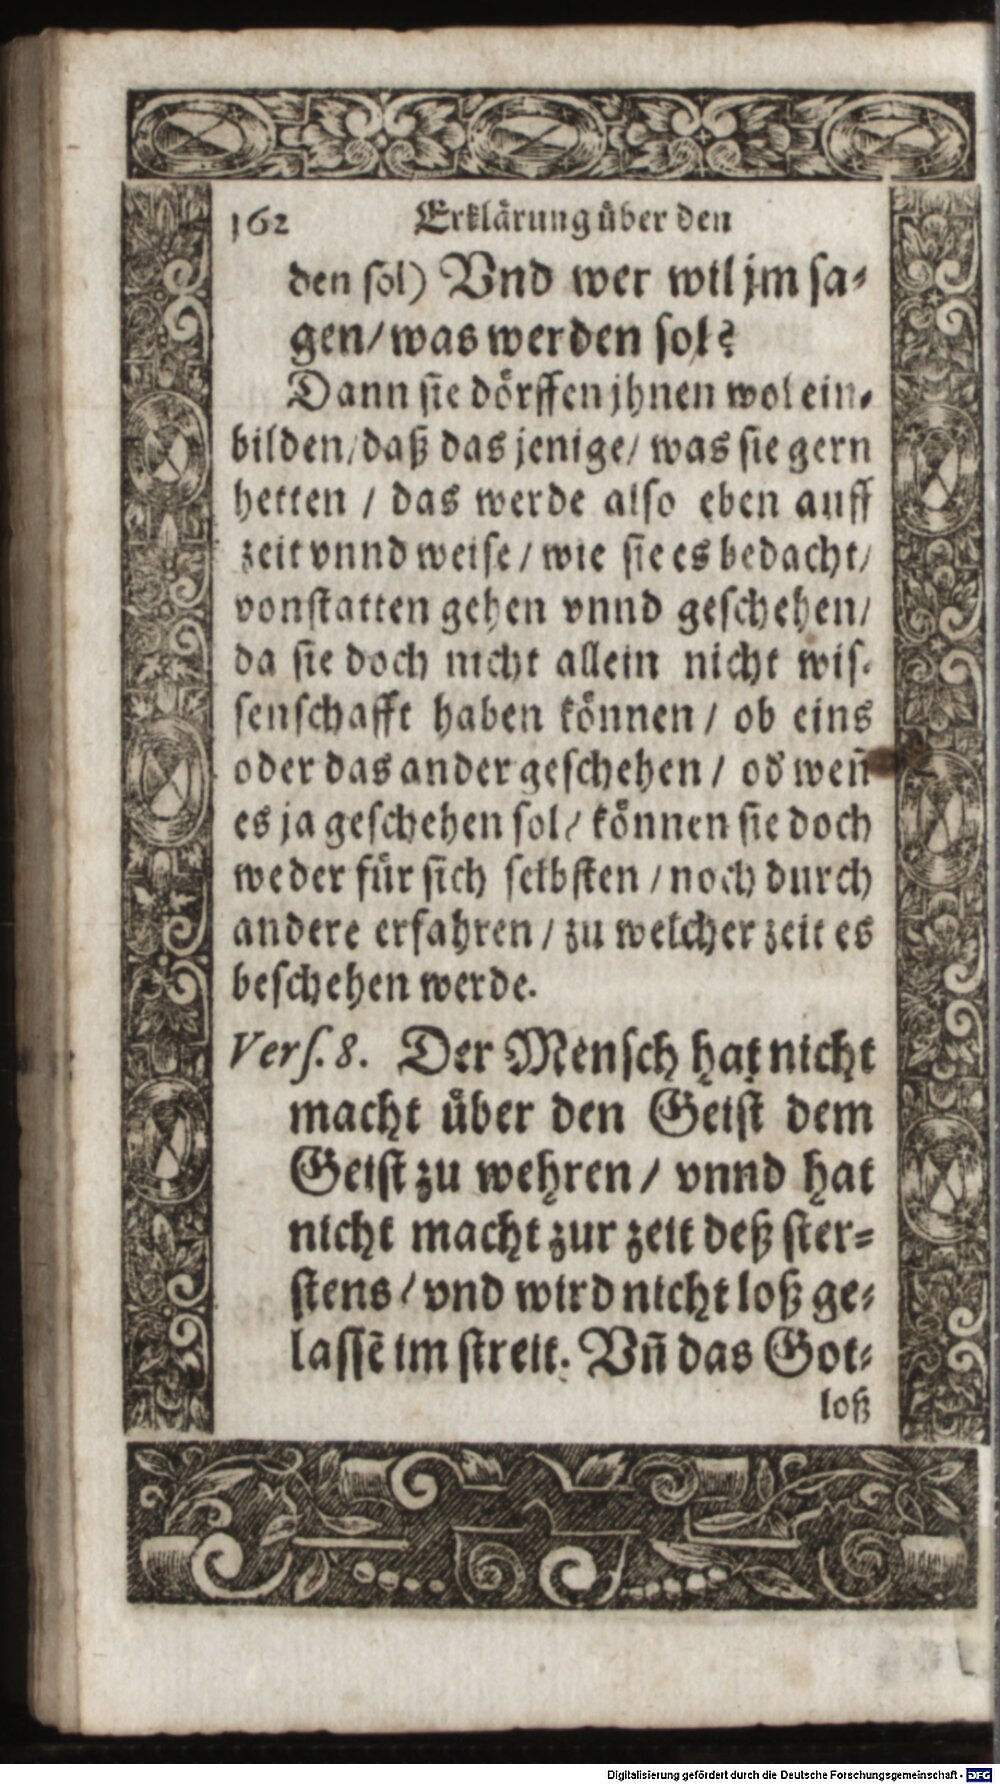 162 Erklärung über den
den sol) Vnd wer wil jm sa-
gen/ was werden sol?
Dann sie dörffen jhnen wol ein-
bilden/ daß das jenige/ was sie gern
hetten / das werde also eben auff
zeit vnnd weise / wie sie es bedacht/
vonstatten gehen vnnd geschehen/
da sie doch nicht allein nicht wis-
senschafft haben können / ob eins
oder das ander geschehen / od weñ
es ja geschehen sol / können sie doch
weder für sich selbsten / noch durch
andere erfahren / zu welcher zeit es
beschehen werde.
Vers. 8. Der Mensch hat nicht
macht über den Geist dem
Geist zu wehren / vnnd hat
nicht macht zur zeit deß ster-
stens / vnd wird nicht loß ge-
lassē im streit. Vñ das Got-
loß
Digitalisierung gefördert durch die Deutsche Forschungsgemeinschaft - DFG